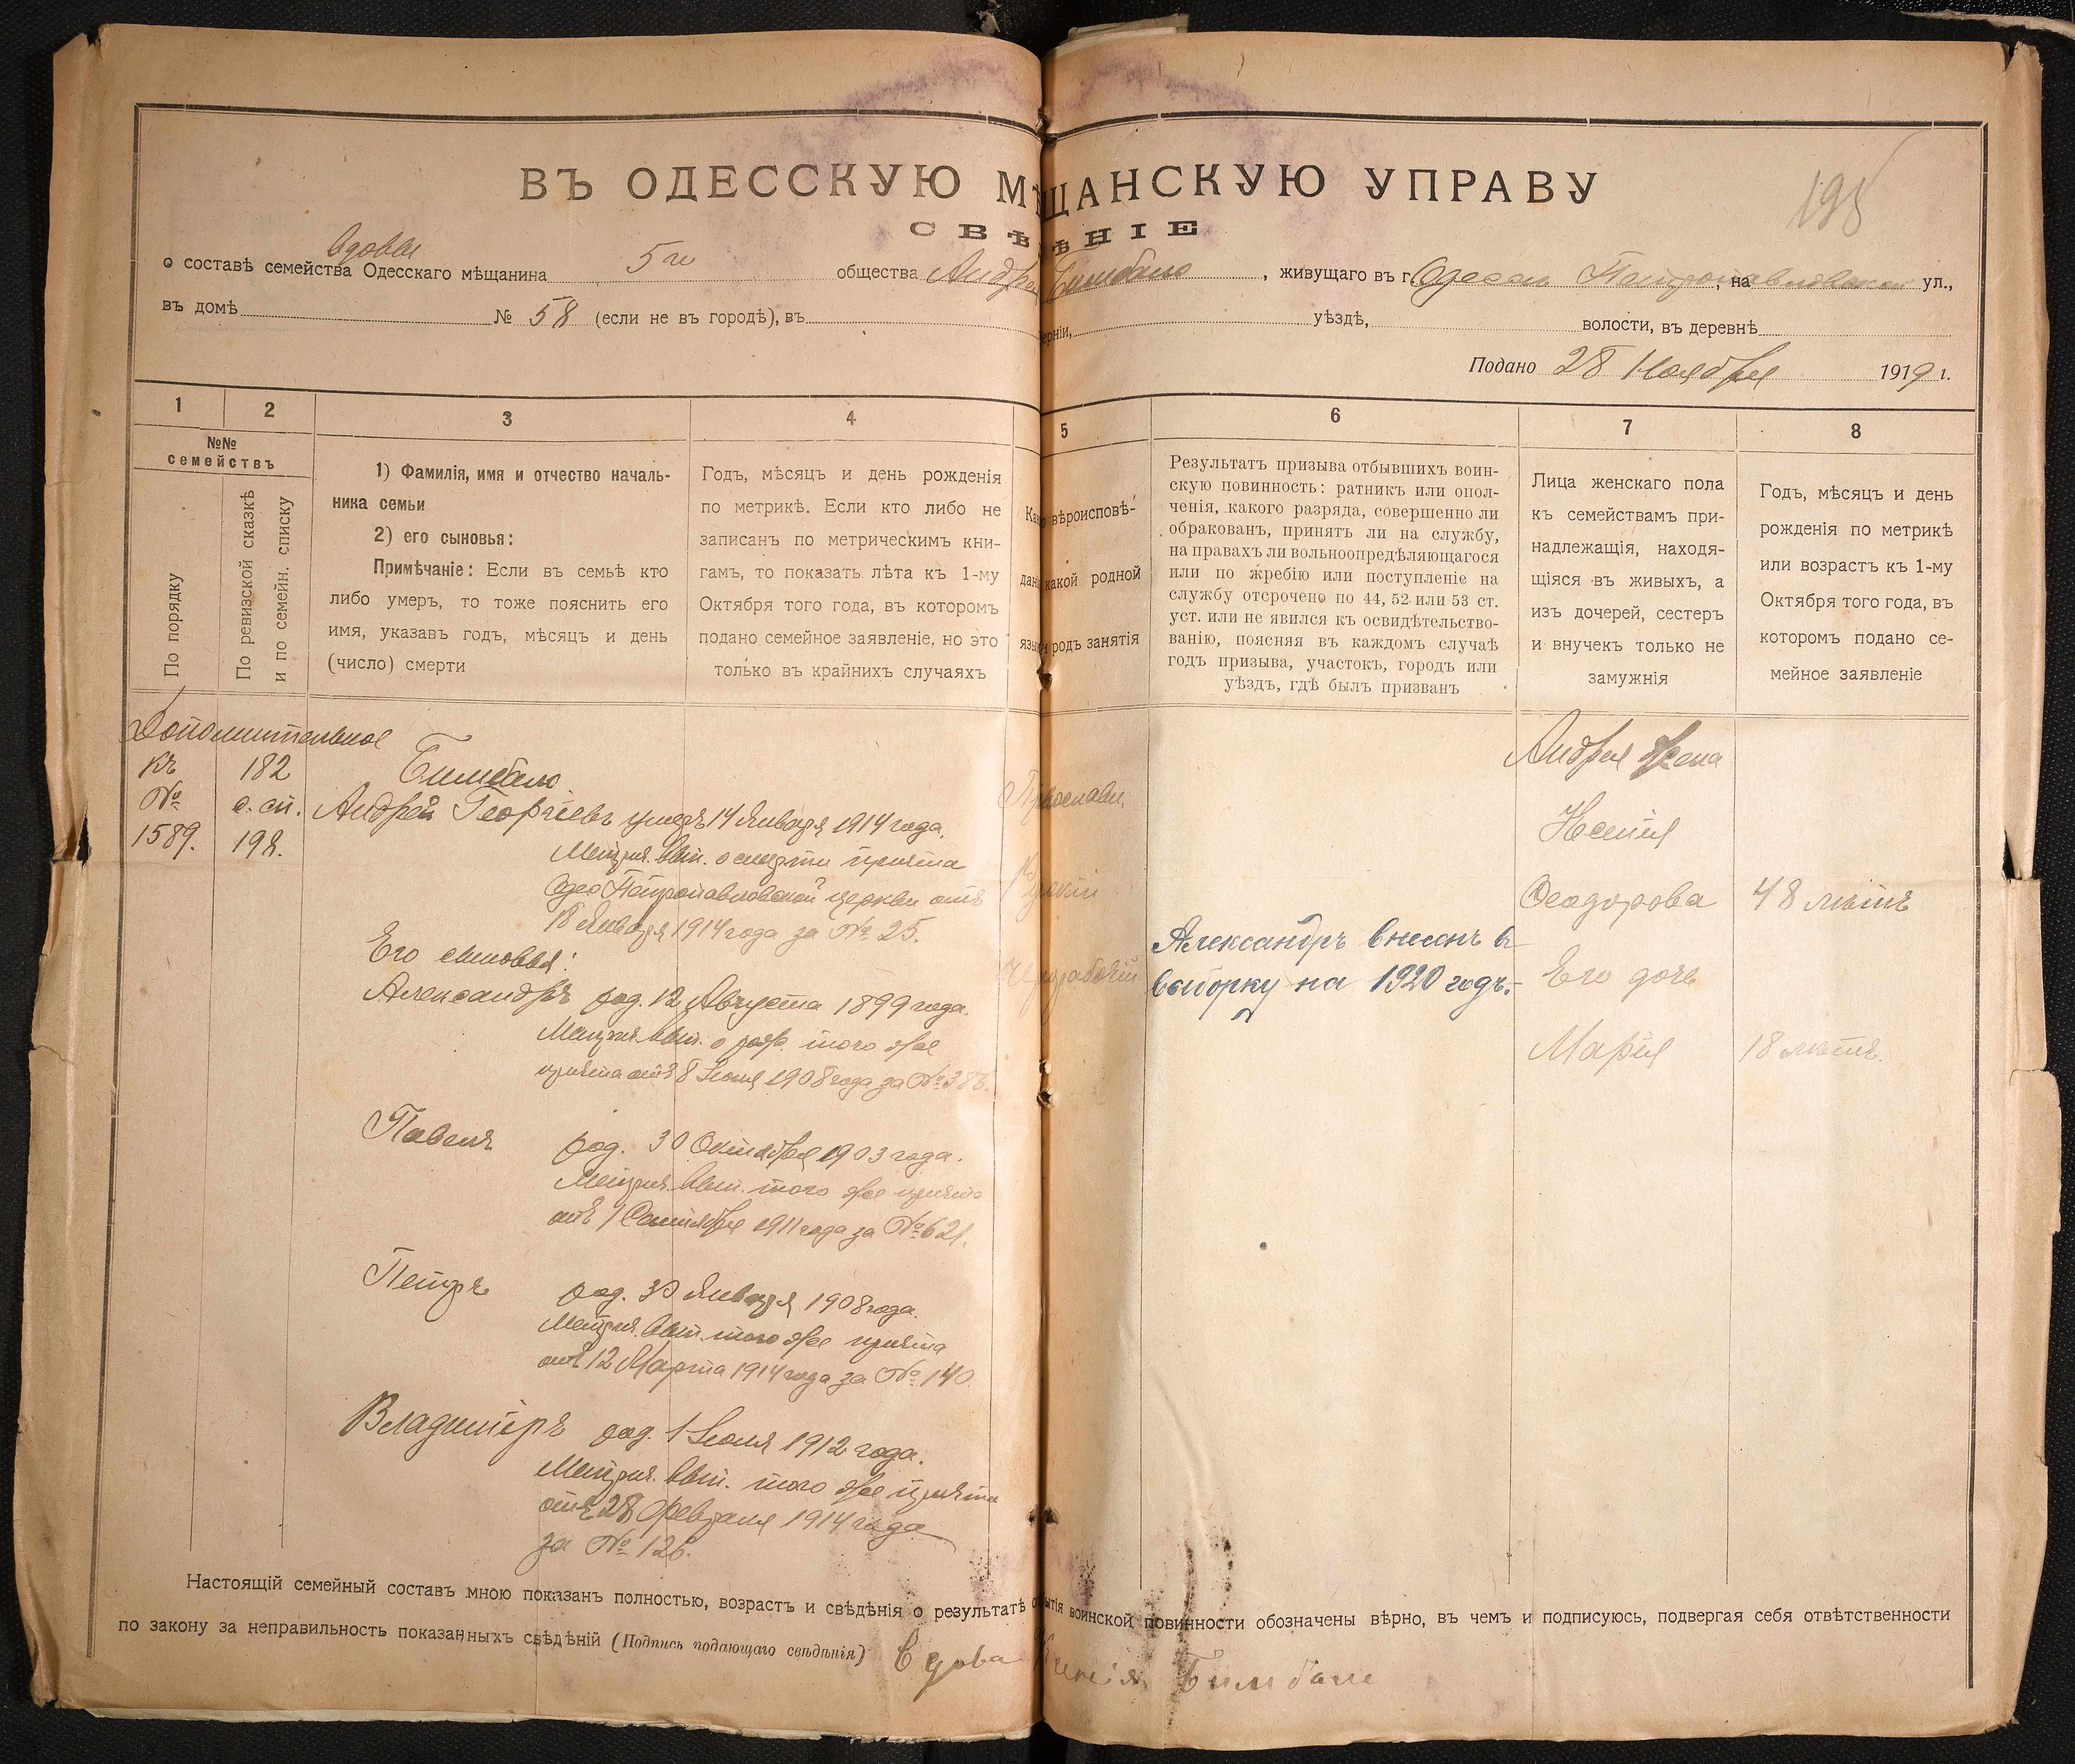 198
ВЪ ОДЕССКУЮ МѢЩАНСКУЮ УПРАВУ
СВѢДѢНІЕ
вдовы
о составѣ семейства Одесскаго мѣщанина 5го общества Андрея Бимбало, живущаго въ г. Одессѣ, на Петропавловской ул.,
въ домѣ № 58 (если не въ городѣ), въ уѣздѣ, волости, въ деревнѣ
Подано 28 Ноября 1919 г.
1 2 3 4 5 6 7 8
№№
семействъ
По порядку
По ревизской сказкѣ
и по семейн. списку
1) Фамилія, имя и отчество началь-
ника семьи
2) его сыновья:
Примѣчаніе: Если въ семьѣ кто
либо умеръ, то тоже пояснить его
имя, указавъ годъ, мѣсяцъ и день
(число) смерти
Годъ, мѣсяцъ и день рожденія
по метрикѣ. Если кто либо не
записанъ по метрическимъ кни-
гамъ, то показать лѣта къ 1-му
Октября того года, въ которомъ
подано семейное заявленіе, но это
только въ крайнихъ случаяхъ
вѣроисповѣ-
какой родной
родъ занятія
Результатъ призыва отбывшихъ воин-
скую повинность: ратникъ или опол-
ченія, какого разряда, совершенно ли
обракованъ, принятъ ли на службу,
на правахъ ли вольноопредѣляющагося
или по жребію или поступленіе на
службу отсрочено по 44, 52 или 53 ст.
уст. или не явился къ освидѣтельство-
ванію, поясняя въ каждомъ случаѣ
годъ призыва, участокъ, городъ или
уѣздъ, гдѣ былъ призванъ
Лица женскаго пола
къ семействамъ при-
надлежащія, находя-
щіяся въ живыхъ, а
изъ дочерей, сестеръ
и внучекъ только не
замужнія
Годъ, мѣсяцъ и день
рожденія по метрикѣ
или возрастъ къ 1-му
Октября того года, въ
которомъ подано се-
мейное заявленіе
Дополнительное
къ
№
1589.
182
с. сп.
198.
Бимбало
Андрей Георгіевъ умеръ 14 Января 1914 года.
Метрич. вып. о смерти причта
Одес. Петропавловской церкви отъ
18 Января 1914 года за № 25.
Его сыновья:
Александръ род. 12 Августа 1899 года.
Метрич. вып. о рожд. того же
причта отъ 8 Іюня 1908 года за №
Павелъ род. 30 Октября 1903 года.
Метрич. вып. того же причта
отъ 1 Сентября 1911 года за № 621.
Петръ род. 30 Января 1908 года.
Метрич. вып. того же причта
отъ 12 Марта 1914 года за № 140
Владиміръ род. 1 Іюля 1912 года.
Метрич. вып. того же причта
отъ 28 Февраля 1914 года
за № 126.
Православ.
Русскій
Чернорабочій
Александръ внесенъ въ
выборку на 1920 годъ.-
Андрея жена
Ксенія
Феодорова 48 лѣтъ
Его дочь
Марія 18 лѣтъ.
Настоящій семейный составъ мною показанъ полностью, возрастъ и свѣдѣнія о результатѣ отбытія воинской повинности обозначены вѣрно, въ чемъ и подписуюсь, подвергая себя отвѣтственности
по закону за неправильность показанныхъ свѣдѣній (Подпись подающаго свѣдѣнія) Вдова Ксенія Бимбале